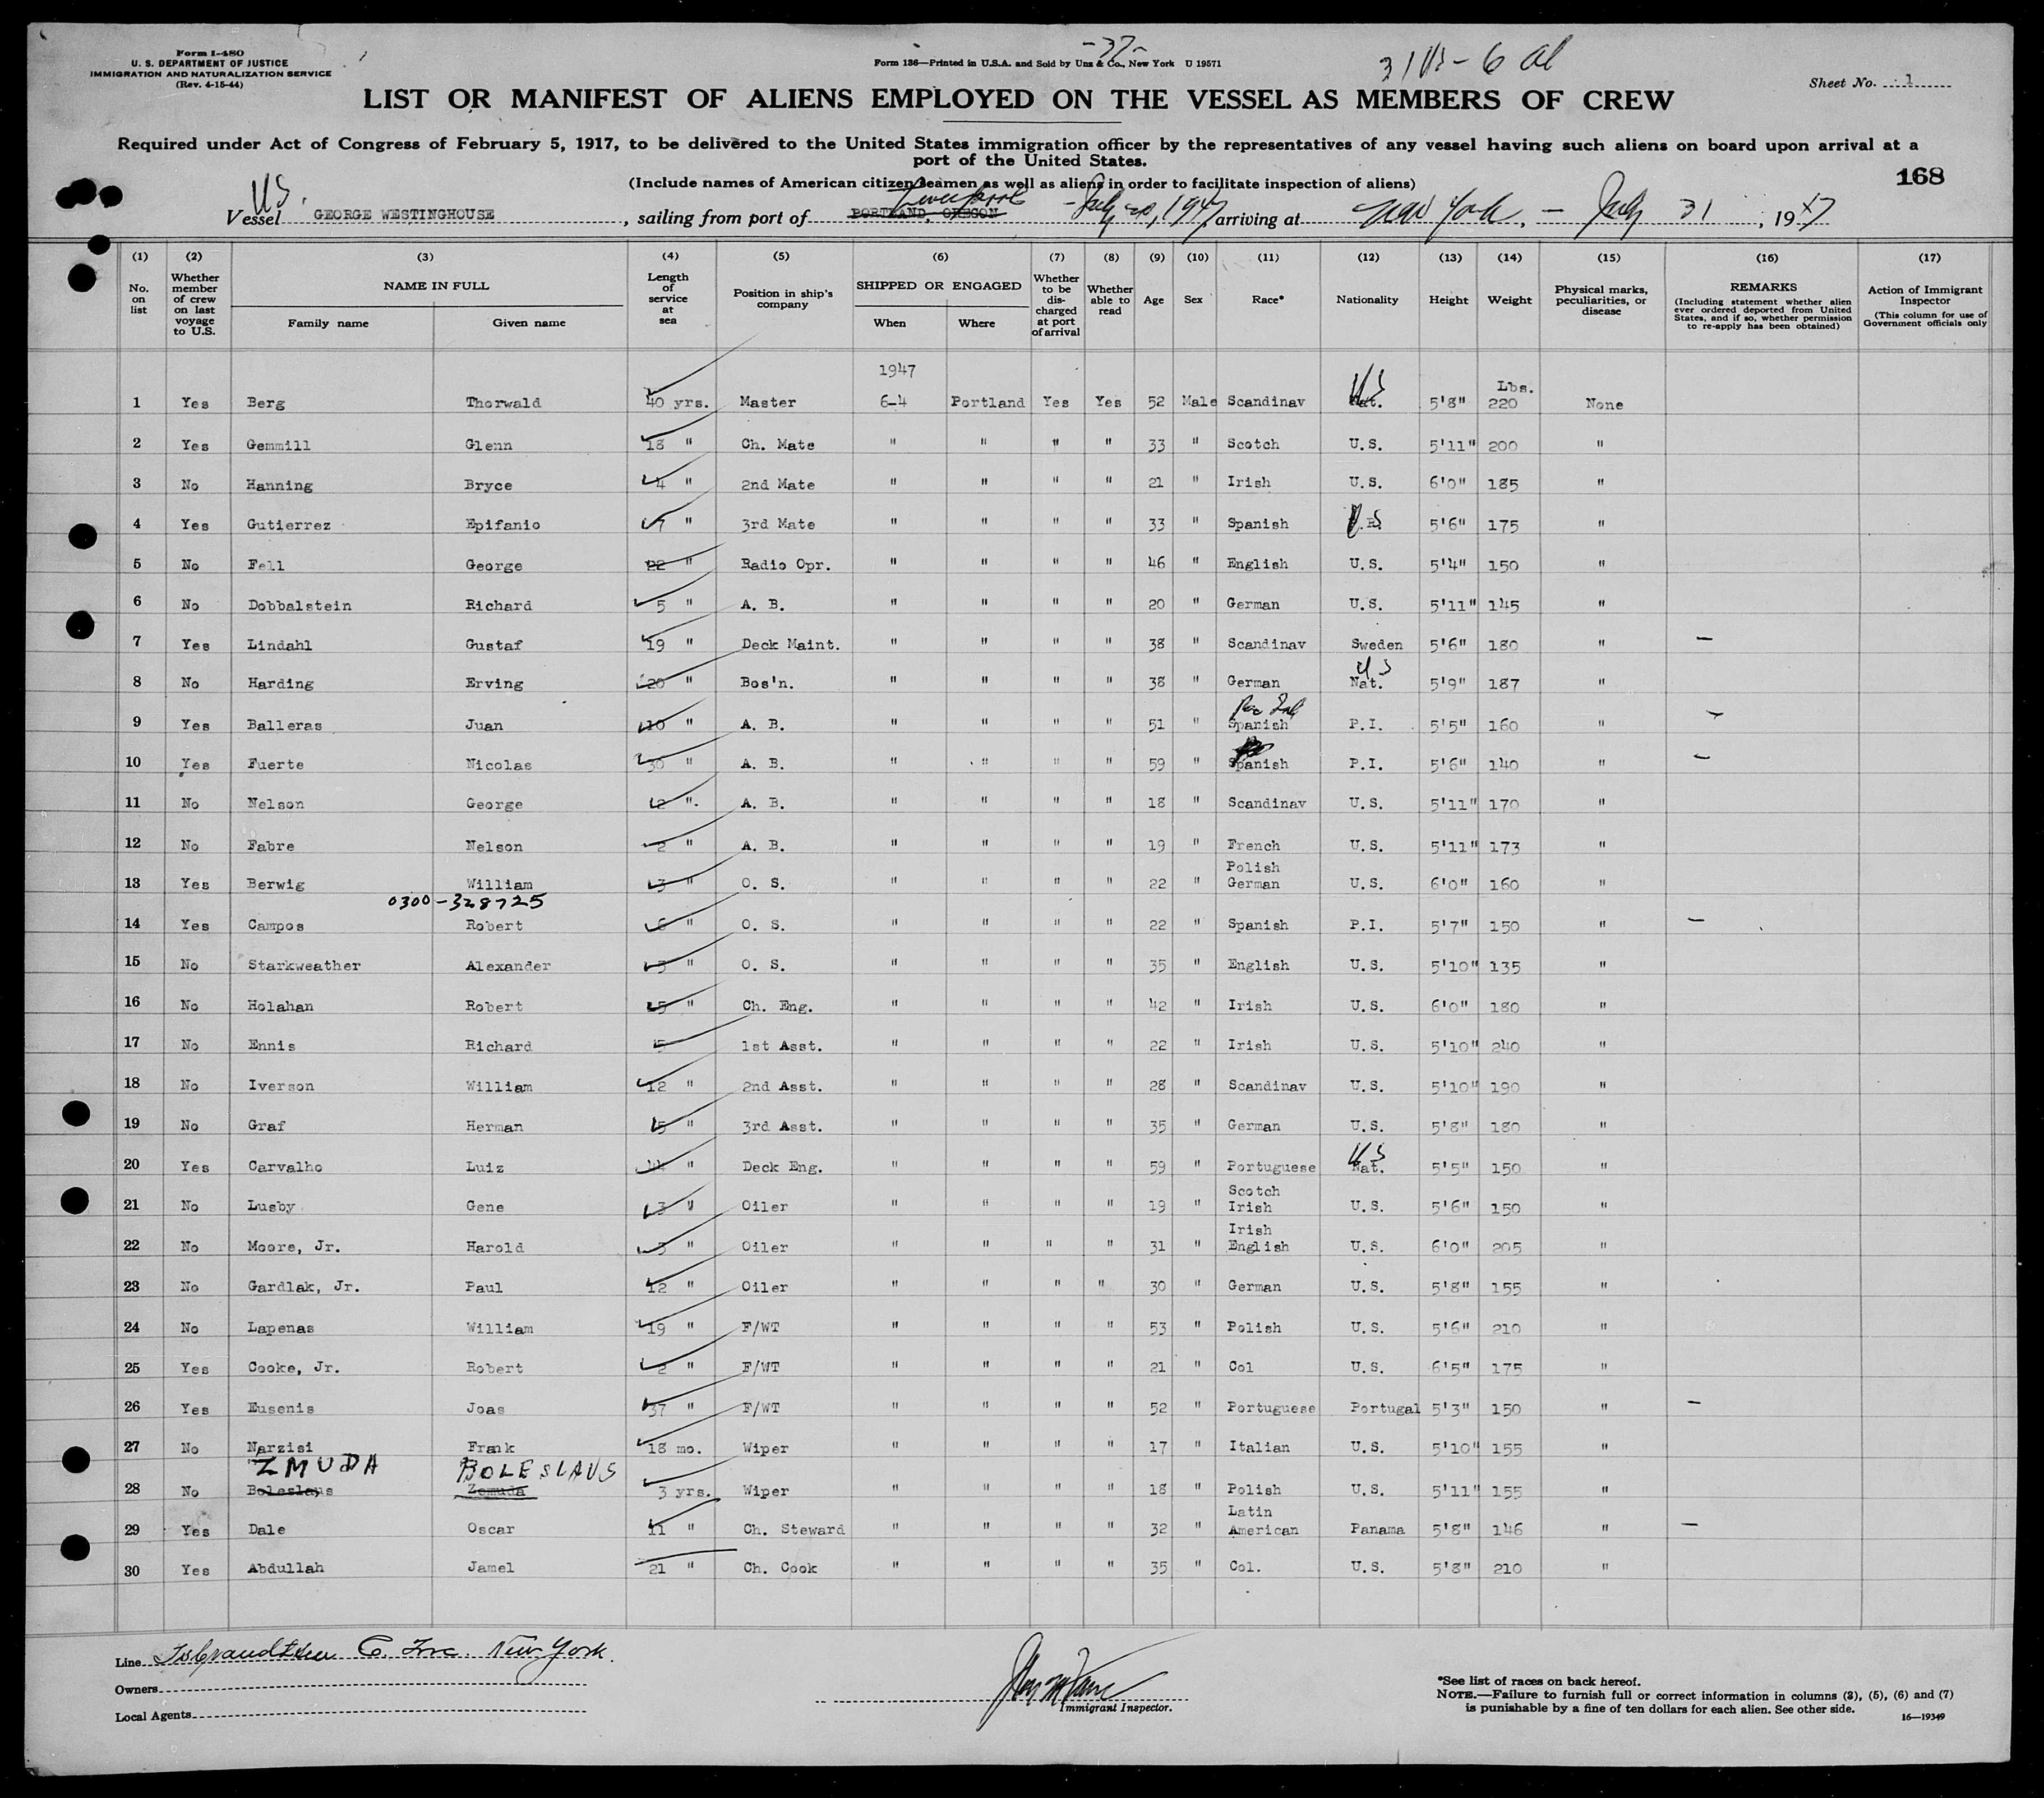 Form I-480
U. S. DEPARTMENT OF JUSTICE
IMMIGRATION AND NATURALIZATION SERVICE
(Rev. 4-15-44)
-37-
Form 136—Printed in U.S.A. and Sold by Unz & Co., New York U 19571
Sheet No. 1
LIST OR MANIFEST OF ALIENS EMPLOYED ON THE VESSEL AS MEMBERS OF CREW
Required under Act of Congress of February 5, 1917, to be delivered to the United States immigration officer by the representatives of any vessel having such aliens on board upon arrival at a
port of the United States.
(Include names of American citizen seamen as well as aliens in order to facilitate inspection of aliens)
168
US.
Vessel GEORGE WESTINGHOUSE, sailing from port of PORTLAND, OREGON Liverpool - July 20, 1947, arriving at New York, - July 31, 1947
(1) (2) (3) (4) (5) (6) (7) (8) (9) (10) (11) (12) (13) (14) (15) (16) (17)
No. on list
Whether member of crew on last voyage to U.S.
NAME IN FULL
Family name Given name
Length of service at sea
Position in ship's company
SHIPPED OR ENGAGED
When Where
Whether to be discharged at port of arrival
Whether able to read
Age
Sex
Race*
Nationality
Height
Weight
Physical marks, peculiarities, or disease
REMARKS
(Including statement whether alien ever ordered deported from United States, and if so, whether permission to re-apply has been obtained)
Action of Immigrant Inspector
(This column for use of Government officials only
1947
Lbs.
1 Yes Berg Thorwald 40 yrs. Master 6-4 Portland Yes Yes 52 Male Scandinav Nat. US 5'8" 220 None
2 Yes Gemmill Glenn 18 " Ch. Mate " " " " 33 " Scotch U.S. 5'11" 200 "
3 No Hanning Bryce 4 " 2nd Mate " " " " 21 " Irish U.S. 6'0" 185 "
4 Yes Gutierrez Epifanio 7 " 3rd Mate " " " " 33 " Spanish 5'6" 175 "
5 No Fell George 22 " Radio Opr. " " " " 46 " English U.S. 5'4" 150 "
6 No Dobbalstein Richard 5 " A. B. " " " " 20 " German U.S. 5'11" 145 "
7 Yes Lindahl Gustaf 19 " Deck Maint. " " " " 38 " Scandinav Sweden 5'6" 180 " -
8 No Harding Erving 20 " Bos'n. " " " " 38 " German Nat. US 5'9" 187 "
9 Yes Balleras Juan 10 " A. B. " " " " 51 " Spanish P.I. 5'5" 160 " -
10 Yes Fuerte Nicolas 30 " A. B. " " " " 59 " Spanish P.I. 5'6" 140 " -
11 No Nelson George 12 ". A. B. " " " " 18 " Scandinav U.S. 5'11" 170 "
12 No Fabre Nelson 2 " A. B. " " " " 19 " French U.S. 5'11" 173 "
13 Yes Berwig William 3 " O. S. " " " " 22 " Polish German U.S. 6'0" 160 "
0300-328725
14 Yes Campos Robert 6 " O. S. " " " " 22 " Spanish P.I. 5'7" 150 " -
15 No Starkweather Alexander 3 " O. S. " " " " 35 " English U.S. 5'10" 135 "
16 No Holahan Robert 15 " Ch. Eng. " " " " 42 " Irish U.S. 6'0" 180 "
17 No Ennis Richard 5 1st Asst. " " " " 22 " Irish U.S. 5'10" 240 "
18 No Iverson William 12 " 2nd Asst. " " " " 28 " Scandinav U.S. 5'10" 190 "
19 No Graf Herman 5 " 3rd Asst. " " " " 35 " German U.S. 5'8" 180 "
20 Yes Carvalho Luiz " Deck Eng. " " " " 59 " Portuguese Nat. US 5'5" 150 "
21 No Lusby Gene 3 " Oiler " " " " 19 " Scotch Irish U.S. 5'6" 150 "
22 No Moore, Jr. Harold 3 " Oiler " " " " 31 " Irish English U.S. 6'0" 205 "
23 No Gardlak, Jr. Paul 12 " Oiler " " " " 30 " German U.S. 5'8" 155 "
24 No Lapenas William 19 " F/WT " " " " 53 " Polish U.S. 5'6" 210 "
25 Yes Cooke, Jr. Robert 2 " F/WT " " " " 21 " Col U.S. 6'5" 175 "
26 Yes Eusenis Joas 37 " F/WT " " " " 52 " Portuguese Portugal 5'3" 150 " -
27 No Narzisi Frank 18 mo. Wiper " " " " 17 " Italian U.S. 5'10" 155 "
ZMUDA BOLESLAUS
28 No Boleslaus Zemuda 3 yrs. Wiper " " " " 18 " Polish U.S. 5'11" 155 "
29 Yes Dale Oscar 11 " Ch. Steward " " " " 32 " Latin American Panama 5'8" 146 " -
30 Yes Abdullah Jamel 21 " Ch. Cook " " " " 35 " Col. U.S. 5'8" 210 "
Line Isbrandtsen Co. Inc. New York.
Owners
Local Agents
Immigrant Inspector.
*See list of races on back hereof.
NOTE.—Failure to furnish full or correct information in columns (3), (5), (6) and (7)
is punishable by a fine of ten dollars for each alien. See other side.
16—19349